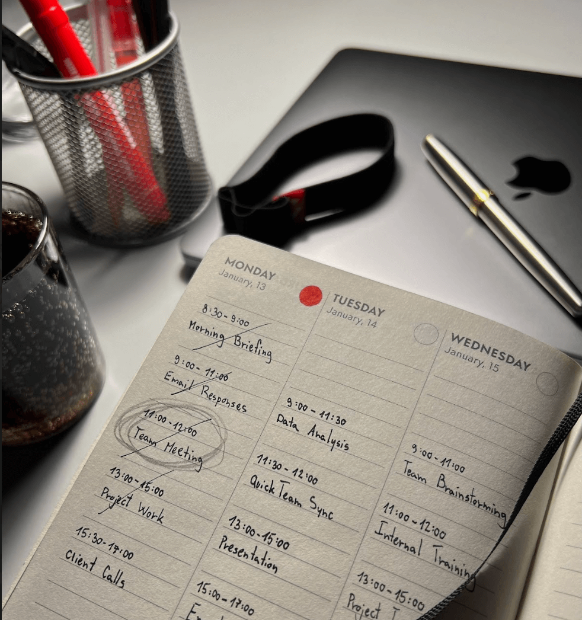 MONDAY
January, 13
8:30-9:00
Morning Briefing
9:00-11:00
Email Responses
11:00-12:00
Team Meeting
13:00-15:00
Project Work
15:30-17:00
Client Calls
TUESDAY
January, 14
9:00-11:30
Data Analysis
11:30-12:00
Quick Team Sync
13:00-15:00
Presentation
15:00-17:00
WEDNESDAY
January, 15
9:00-11:00
Team Brainstorming
11:00-12:00
Internal Training
13:00-15:00
Project